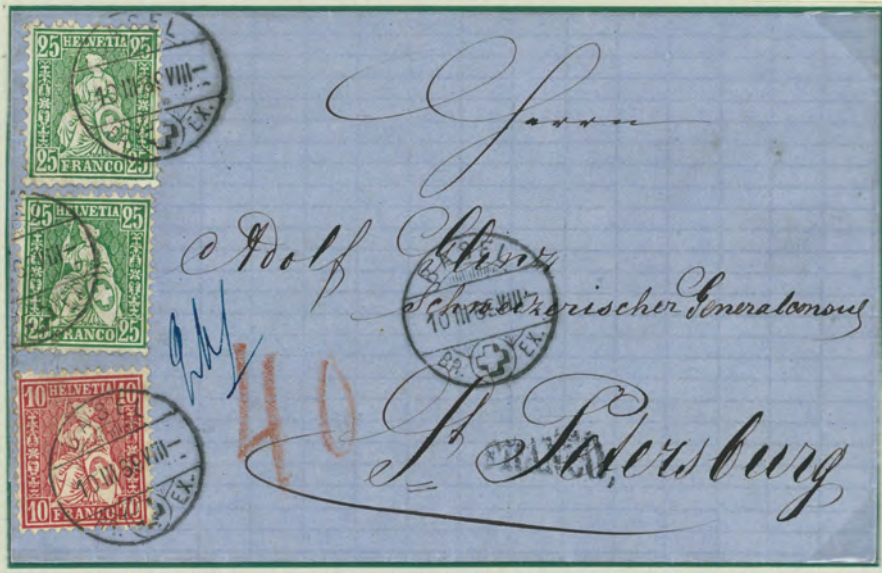 25 HELVETIA 25
25 FRANCO 25
25 HELVETIA 25
25 FRANCO 25
10 HELVETIA 10
10 FRANCO 10
Herrn
Adolf Glinz
Schweizerischer Generalconsul
St Petersburg
BASEL
10 III 69 VIII-
BR. EX.
40
FRANCO